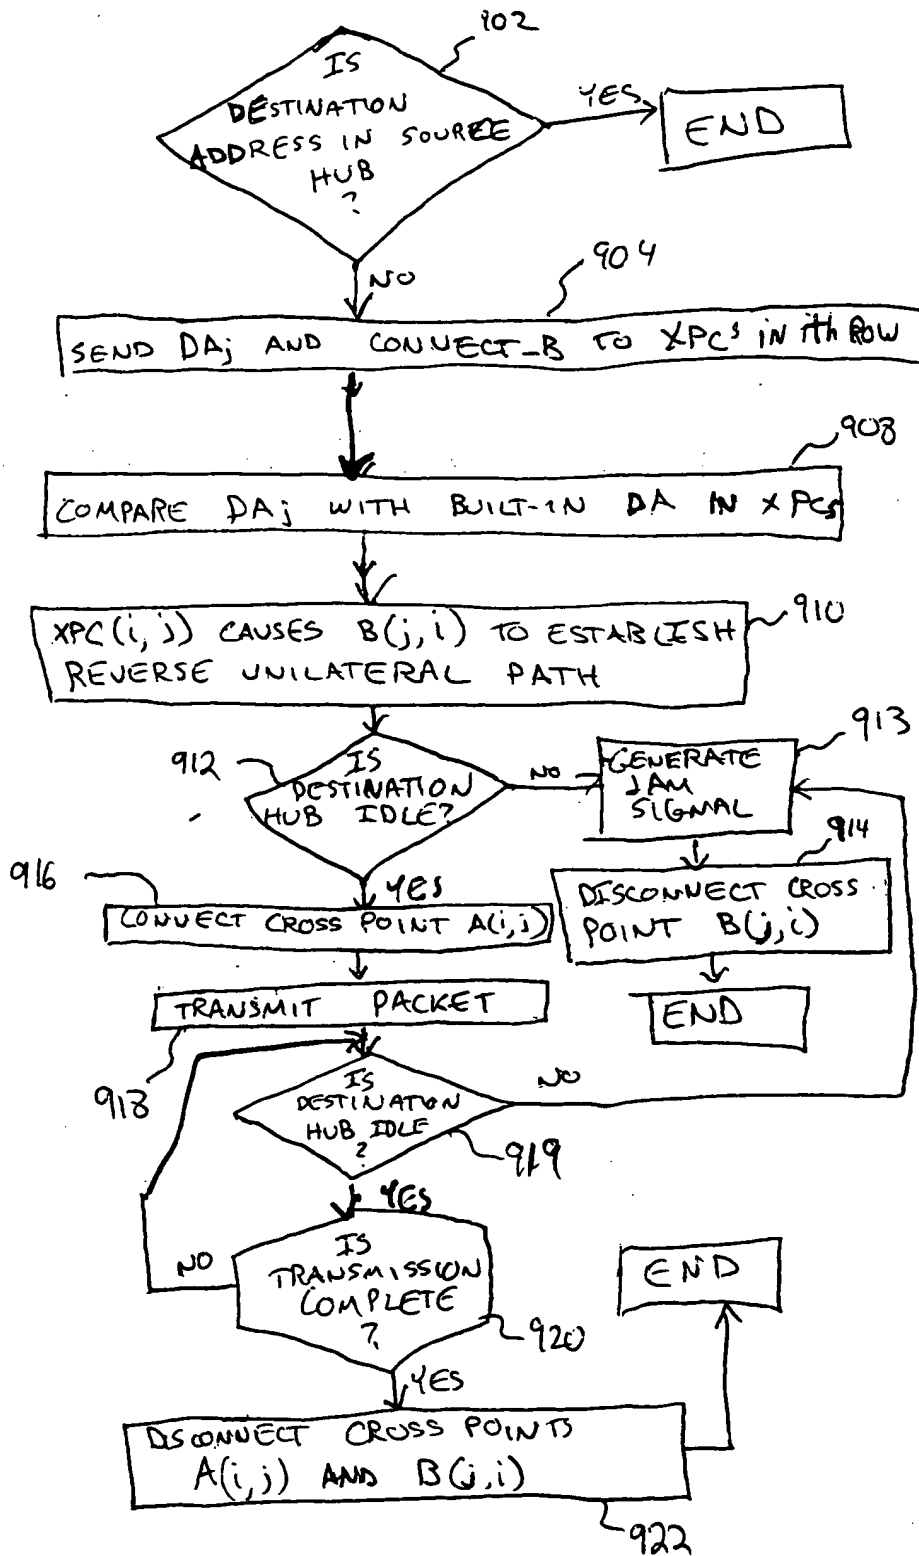 902
IS
DESTINATION
ADDRESS IN SOURCE
HUB
?
YES
END
NO
904
SEND DAj AND CONNECT_B TO XPCs IN ith ROW
908
COMPARE DAj WITH BUILT-IN DA IN XPCs
910
XPC(i,j) CAUSES B(j,i) TO ESTABLISH
REVERSE UNILATERAL PATH
912
IS
DESTINATION
HUB IDLE?
NO
913
GENERATE
JAM
SIGNAL
914
DISCONNECT CROSS
POINT B(j,i)
END
YES
916
CONNECT CROSS POINT A(i,j)
TRANSMIT PACKET
918
IS
DESTINATION
HUB IDLE
?
NO
919
YES
IS
TRANSMISSION
COMPLETE
?
NO
920
YES
END
DISCONNECT CROSS POINTS
A(i,j) AND B(j,i)
922